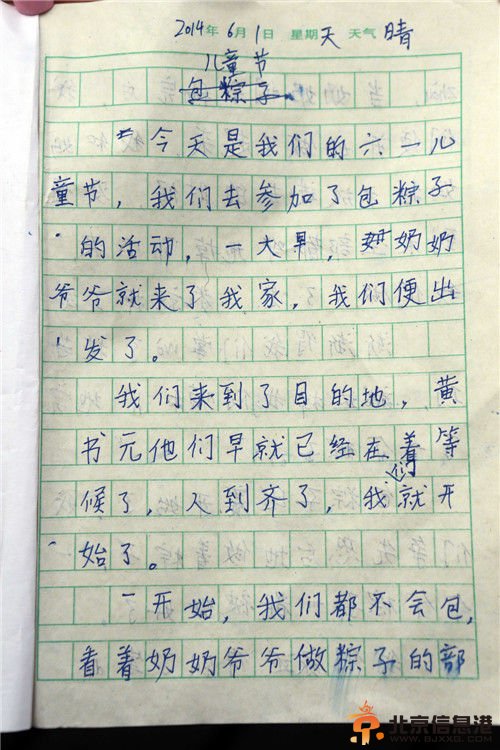 2014年6月1日 星期天 天气晴
儿童节
包粽子
今天是我们的六一儿
童节，我们去参加了包粽子
的活动，一大早，奶奶
爷爷就来了我家，我们便出
发了。
我们来到了目的地，黄
书元他们早就已经在着等
候了，人到齐了，我们就开
始了。
一开始，我们都不会包，
看着奶奶爷爷做粽子的部
北京信息港
WWW.BJXXG.COM